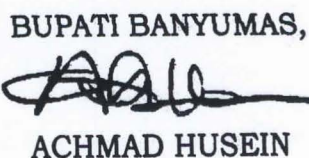 BUPATI BANYUMAS,
ACHMAD HUSEIN